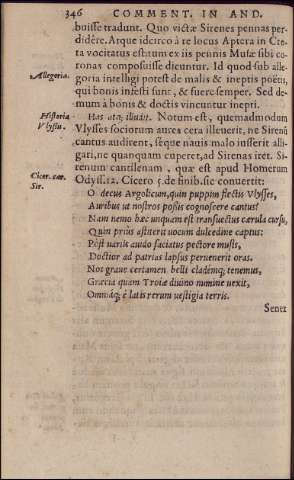 346 COMMENT. IN AND.
buisse tradunt. Quo victæ Sirenes pennas per-
didêre. Atque idcirco à re locus Aptera in Cre-
ta vocitatus est: tum ex iis pennis Musæ sibi co-
ronas composuisse dicuntur. Id quod sub alle-
Allegoria.
goria intelligi potest de malis & ineptis poëtis,
qui bonis infesti sunt, & fuere semper. Sed de-
mum à bonis & doctis vincuntur inepti.
Historia
Vlyssis.
Has ota, illusit. Notum est, quemadmodum
Vlysses sociorum aures cera illeuerit, ne Sirenũ
cantus audirent, séque nauis malo iusserit alli-
gari, ne quanquam cuperet, ad Sirenas iret. Si-
renum cantilenam, quæ est apud Homerum
Cicer. car.
Sir.
Odyss. 12. Cicero 5. de finib. sic conuertit:
O decus Argolicum, quin puppim flectis Vlysses,
Auribus ut nostros possis cognoscere cantus?
Nam nemo hæc unquam est transuectus cærula cursu,
Quin prius astiterit uocum dulcedine captus:
Pòst uariis auido saciatus pectore musis,
Doctior ad patrias lapsus peruenerit oras.
Nos graue certamen belli clademq́; tenemus,
Græcia quam Troiæ diuino numine uexit,
Omniaq́; è latis rerum uestigia terris.
Senex